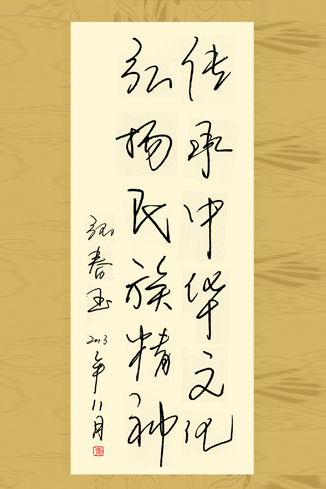 传承中华文化
弘扬民族精神
张春玉 2013年11月